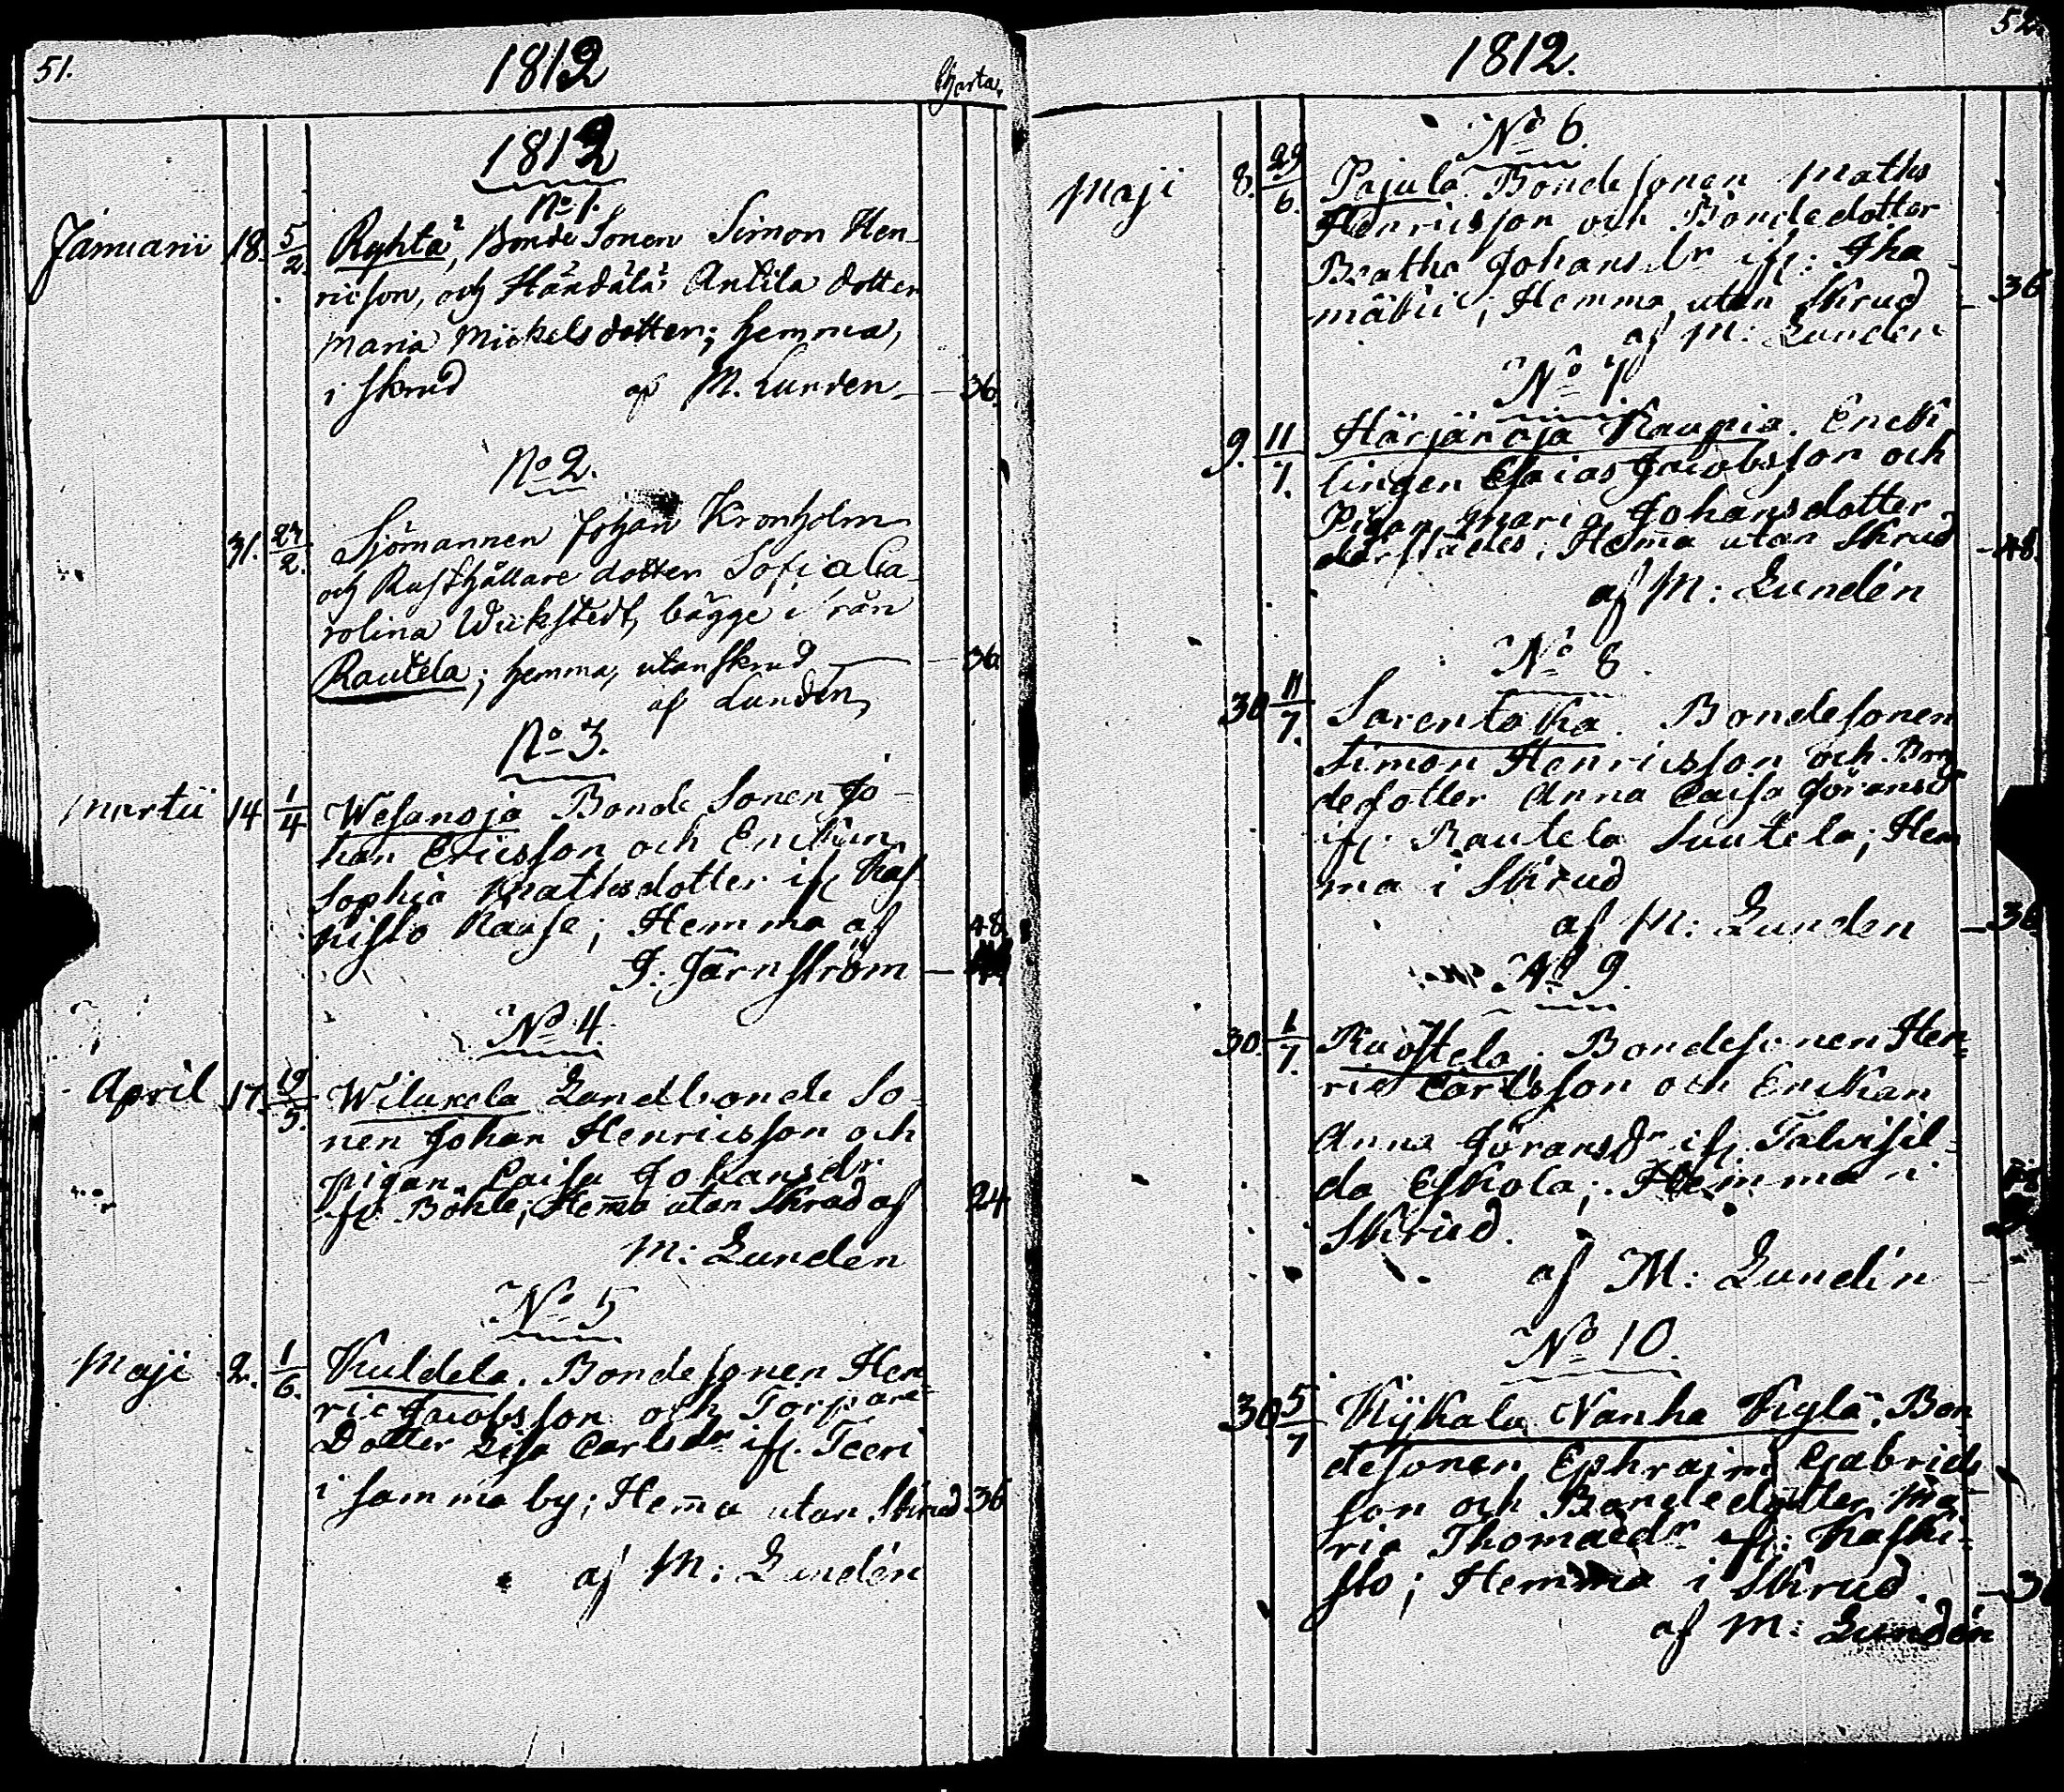 51.
1812
Charta.
1812
No 1.
Januarii 18. 5/2. Ryhtä, Bonde Sonen Simon Hen-
ricson, och Händälä Antila dotter
Maria Mickelsdotter; hemma,
i skrud af M. Lunden. 36.
No 2.
31. 27/2. Sjömannen Johan Kronholm
och Rusthållare dotter Sofia Ca-
rolina Wickstedt, bägge i från
Rautela; hemma, utan skrud 36.
af Lundén,
No 3.
Martii 14 1/4 Wesanoja Bonde Sonen Jo-
han Ericsson och Enkan
Sophia Mathsdotter ifr. Kas-
kisto Kause; Hemma af 48
J. Järnström
No 4.
April 17. 19/5. Wilukela Landbonde So-
nen Johan Henricsson och
pigan Caisa Johansdr
ifr. Böhle; Hema utan Skrud af 24
M: Lunden
No 5
Maji 2. 1/6. Kuldela. Bondesonen Hen-
ric Jacobsson och Torpare
Dotter Lisa Carlsdr ifr. Teeri
i samma by; Hema utan Skrud 36
af M: Lundén
1812.
No 6.
Maji 8. 29/6. Pajula. Bondesonen Maths
Henricsson och Bondedotter
Beatha Johansdr ifr: Iha-
mäkii; Hemma, utan Skrud 36
af M: Lunden
No 7
9. 11/7. Härjänoja Kaupia. Enck-
lingen Esaias Jacobsson och
Pigan Maria Johansdotter
därstädes; Hema utan Skrud 48.
af M: Lundén
No 8
30 11/7. Sorentaka. Bondesonen
Simon Henricsson och Bon-
dedotter Anna Caisa Göransdr
ifr. Rautela Suutela; Hem
ma i Skrud
af M: Lunden 36.
No 9.
30. 1/7. Ruostela. Bondesonen Hen-
ric Carlsson och Enckan
Anna Göransdr ifr. Talvisil-
da Eskola; Hemma i
Skrud.
af M: Lundén
No 10.
30 5/7 Kÿkala Nanha Kylä. Bon
desonen Ephraim Gabriels
son och Bondedotter Ma-
ria Thomaedr ifr: Kaski-
sto; Hemma i Skrud.
af M: Lundén